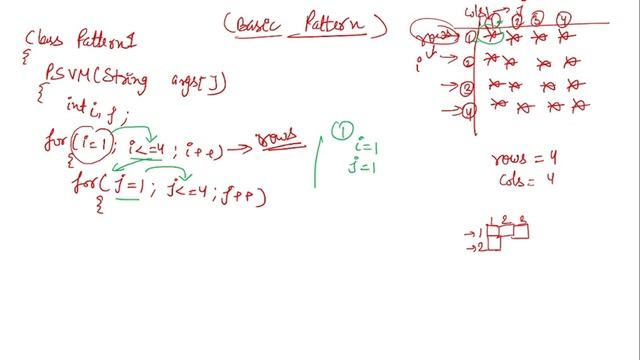 (Basic Pattern)
Class Pattern1
{
PSVM(String args[])
{
int i, j;
for(i=1; i<=4; i++) → rows
{
for(j=1; j<=4; j++)
{
① 
i=1
j=1
cols → j
① ② ③ ④
rows → ① * * * *
i → 2 * * * *
→ ② * * * *
→ ④ * * * *
rows = 4
cols = 4
1 2 3
→ 1
→ 2